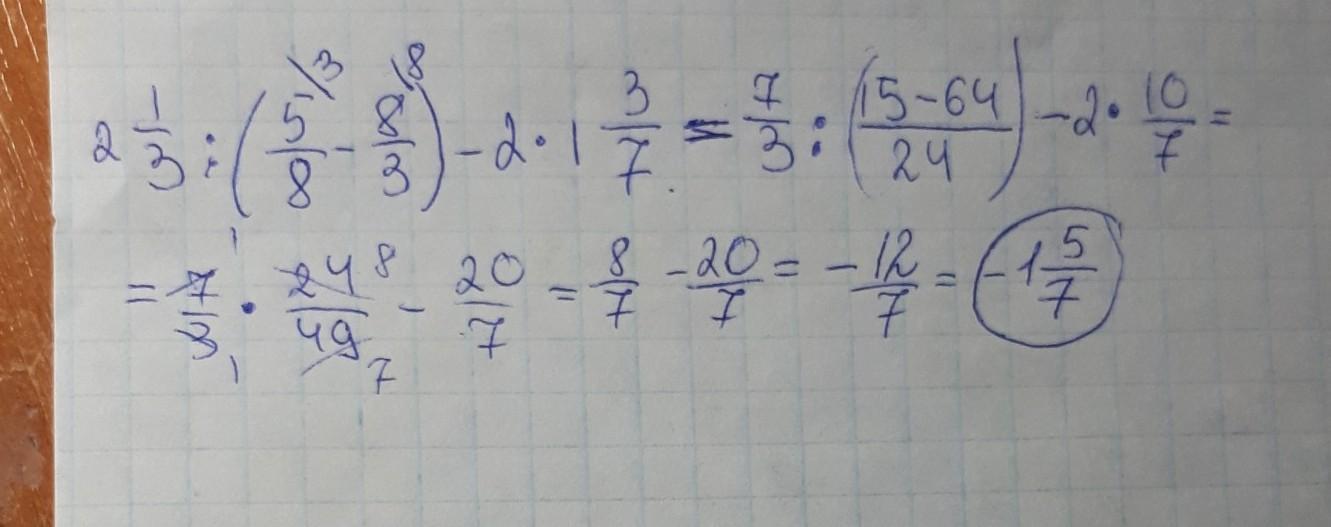 2 1/3 : (5\3/8 - 8\8/3) - 2 · 1 3/7 = 7/3 : (15-64/24) - 2 · 10/7 =
= 7 1/3 1 · 24 8/49 7 - 20/7 = 8/7 - 20/7 = - 12/7 = -1 5/7